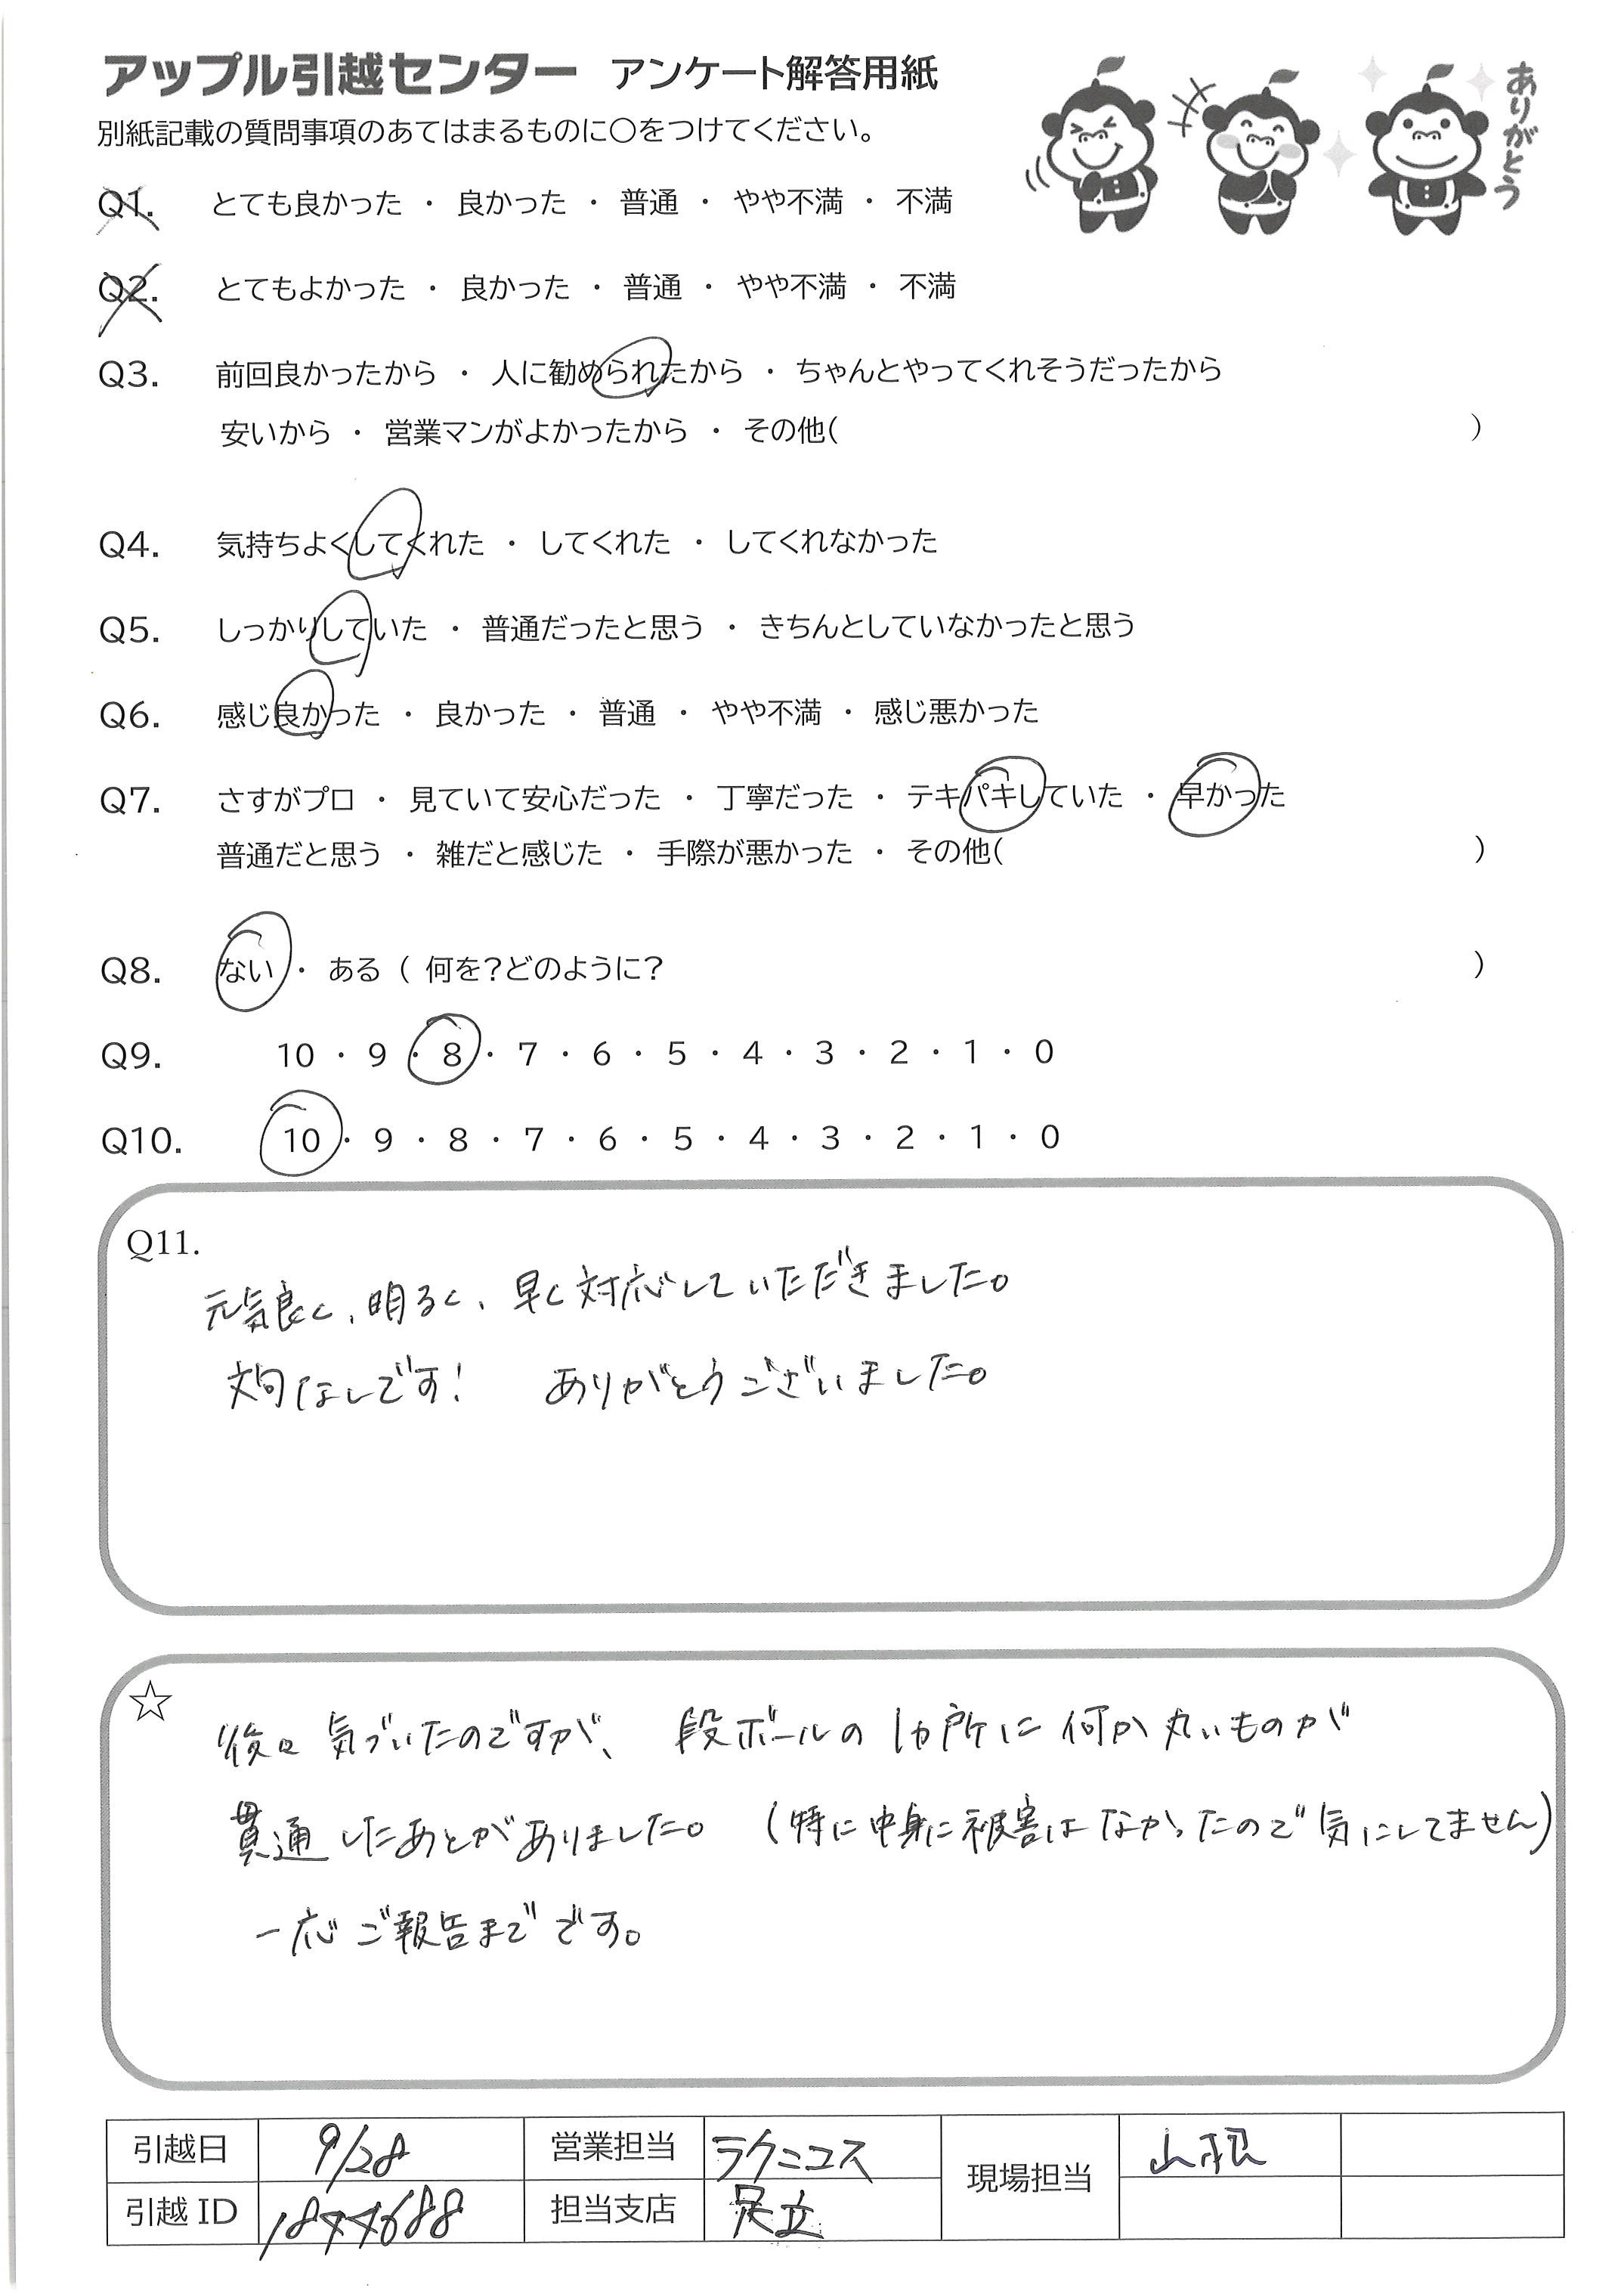 アップル引越センター アンケート解答用紙
別紙記載の質問事項のあてはまるものに○をつけてください。
ありがとう
Q1. とても良かった ・ 良かった ・ 普通 ・ やや不満 ・ 不満
Q2. とてもよかった ・ 良かった ・ 普通 ・ やや不満 ・ 不満
Q3. 前回良かったから ・ 人に勧められたから ・ ちゃんとやってくれそうだったから
安いから ・ 営業マンがよかったから ・ その他( )
Q4. 気持ちよくしてくれた ・ してくれた ・ してくれなかった
Q5. しっかりしていた ・ 普通だったと思う ・ きちんとしていなかったと思う
Q6. 感じ良かった ・ 良かった ・ 普通 ・ やや不満 ・ 感じ悪かった
Q7. さすがプロ ・ 見ていて安心だった ・ 丁寧だった ・ テキパキしていた ・ 早かった
普通だと思う ・ 雑だと感じた ・ 手際が悪かった ・ その他( )
Q8. ない ・ ある ( 何を?どのように? )
Q9. 10 ・ 9 ・ 8 ・ 7 ・ 6 ・ 5 ・ 4 ・ 3 ・ 2 ・ 1 ・ 0
Q10. 10 ・ 9 ・ 8 ・ 7 ・ 6 ・ 5 ・ 4 ・ 3 ・ 2 ・ 1 ・ 0
Q11.
元気良く、明るく、早く対応していただきました。
文句なしです! ありがとうございました。
☆
後々気づいたのですが、段ボールの1カ所に何か丸いものが
貫通したあとがありました。(特に中身に被害はなかったので気にしてません)
一応ご報告までです。
引越日 9/28 営業担当 ラクニコス 現場担当 山根
引越ID 担当支店 足立